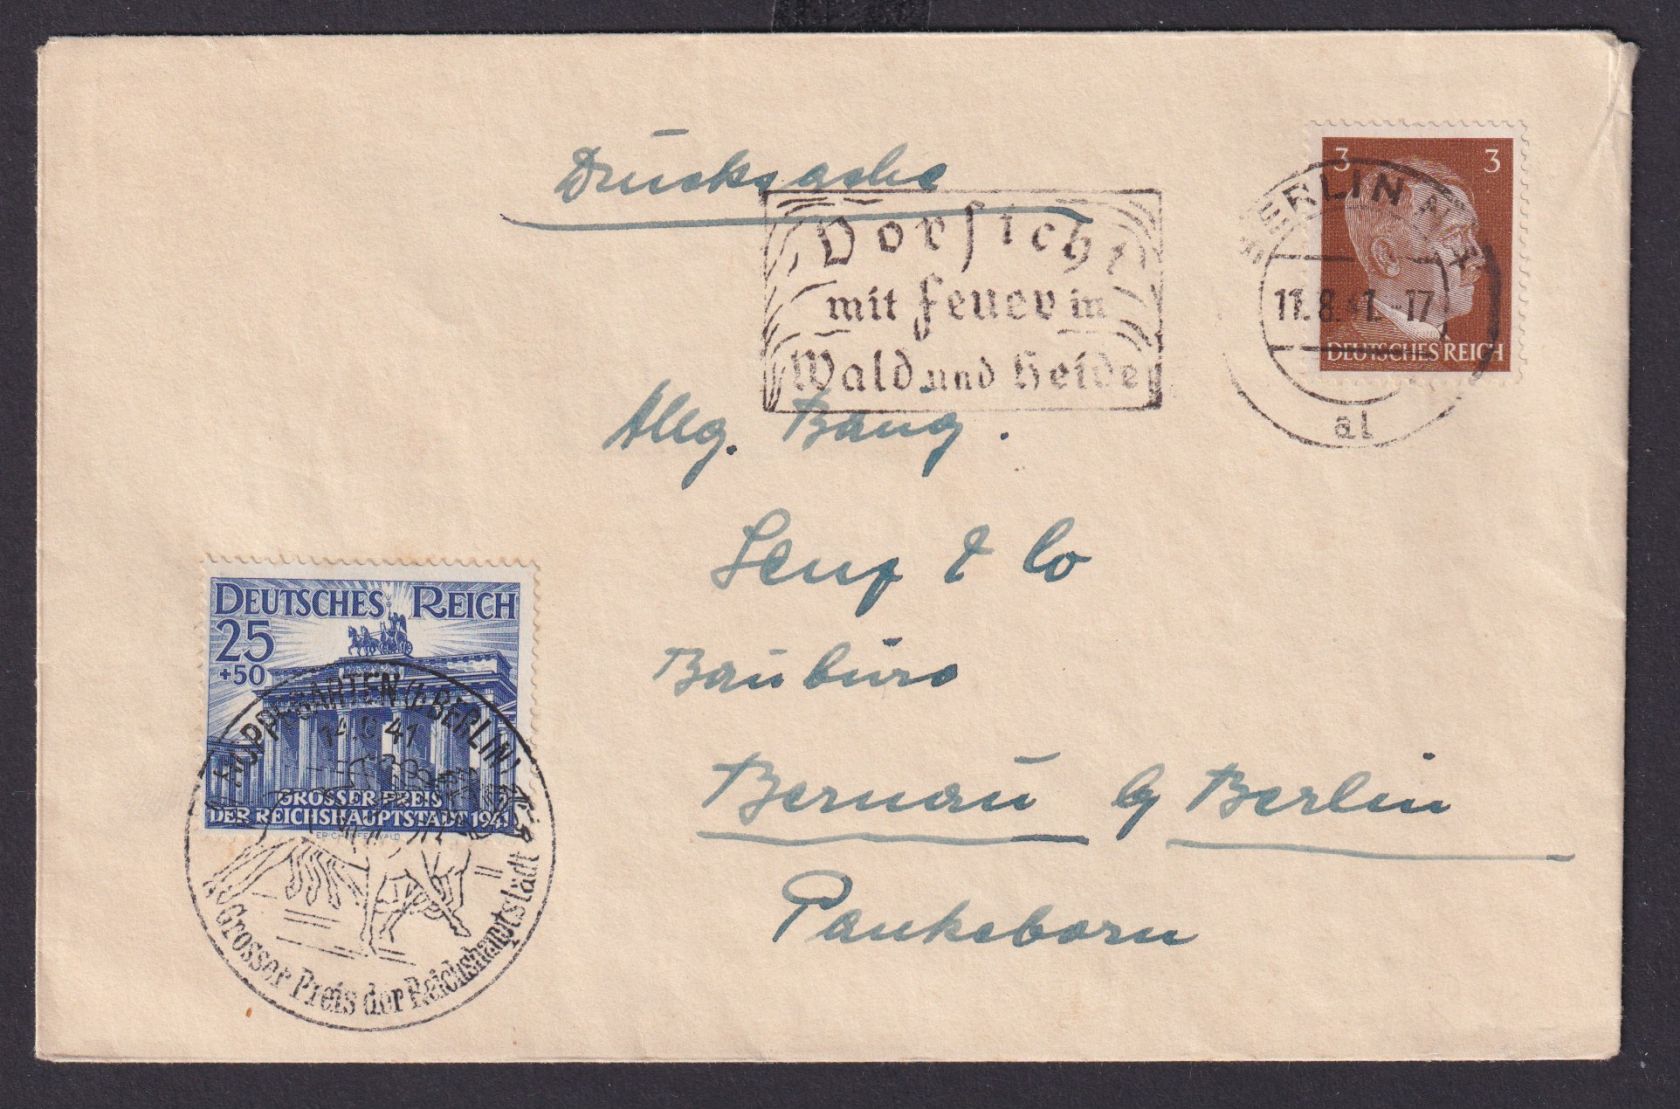 Drucksache
3 3
DEUTSCHES REICH
BERLIN
11.8.41.-17
al
Vorsicht
mit Feuer in
Wald und Heide
Allg. Baug.
Lenz & Co
Baubüro
Bernau b/ Berlin
Pankeborn
DEUTSCHES REICH
25
+50
GROSSER PREIS
DER REICHSHAUPTSTADT 1941
HOPPEGARTEN (b. BERLIN)
Grosser Preis der Reichshauptstadt